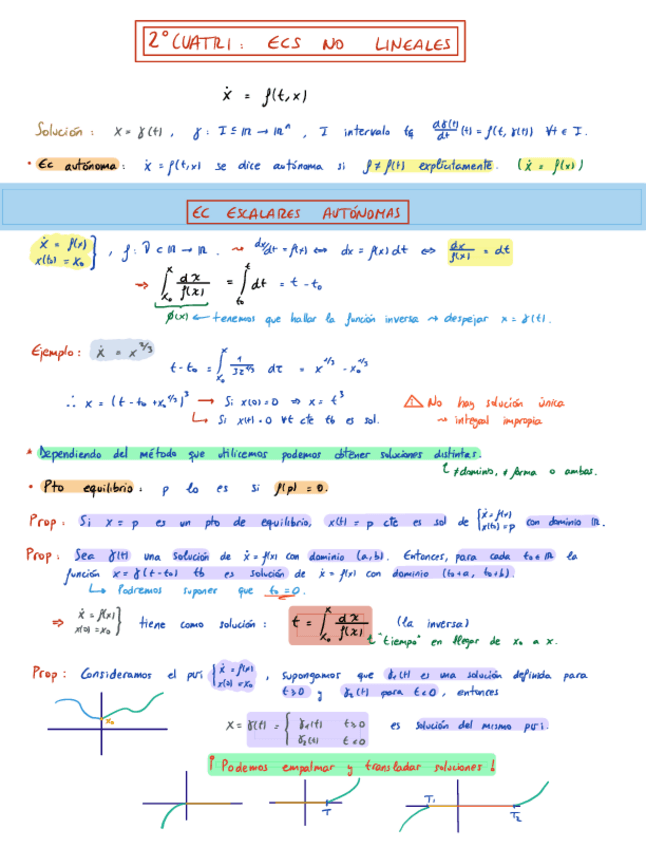 2º CUATRI: ECS NO LINEALES
ẋ = f(t,x)
Solución: x = γ(t), γ: I ⊆ ℝ → ℝⁿ, I intervalo tq dγ(t)/dt (t) = f(t, γ(t)) ∀t ∈ I.
• Ec autónoma: ẋ = f(t,x) se dice autónoma si f ≠ f(t) explícitamente. (ẋ = f(x))
EC ESCALARES AUTÓNOMAS
ẋ = f(x) x(t₀) = x₀ }, f: D ⊂ ℝ → ℝ. ⇝ dx/dt = f(x) ⇔ dx = f(x) dt ⇔ dx/f(x) = dt
→ ∫_{x₀}^{x} dx/f(x) = ∫_{t₀}^{t} dt = t - t₀
φ(x) ← tenemos que hallar la función inversa → despejar x = γ(t).
Ejemplo: ẋ = x^{2/3}
t - t₀ = ∫_{x₀}^{x} 1/3z^{2/3} dz = x^{1/3} - x₀^{1/3}
∴ x = (t - t₀ + x₀^{1/3})³ → Si x(0) = 0 ⇒ x = t³
↳ Si x(t) = 0 ∀t cte tb es sol.
⚠ No hay solución única
⇝ integral impropia
• Dependiendo del método que utilicemos podemos obtener soluciones distintas.
↳ ≠ dominio, ≠ forma o ambas.
• Pto equilibrio: p lo es si f(p) = 0.
Prop: Si x = p es un pto de equilibrio, x(t) = p cte es sol de { ẋ = f(x) x(t₀) = p con dominio ℝ.
Prop: Sea γ(t) una solución de ẋ = f(x) con dominio (a,b). Entonces, para cada t₀ ∈ ℝ la
función x = γ(t - t₀) tb es solución de ẋ = f(x) con dominio (t₀+a, t₀+b).
↳ Podremos suponer que t₀ = 0.
⇒ ẋ = f(x) x(0) = x₀ } tiene como solución: t = ∫_{x₀}^{x} dx/f(x) (la inversa)
↳ "tiempo" en llegar de x₀ a x.
Prop: Consideramos el pvi { ẋ = f(x) x(0) = x₀, supongamos que γ₁(t) es una solución definida para
t ≥ 0 y γ₂(t) para t < 0, entonces
x₀
x = γ(t) = { γ₁(t) t ≥ 0 es solución del mismo pvi.
γ₂(t) t < 0
¡Podemos empalmar y transladar soluciones!
T
T₁
T₂